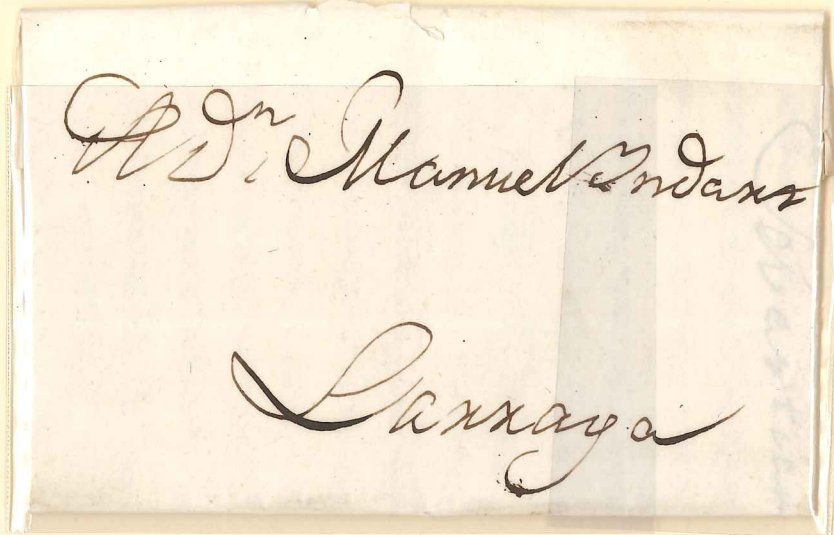 A Dn Manuel Yndart
Larraga